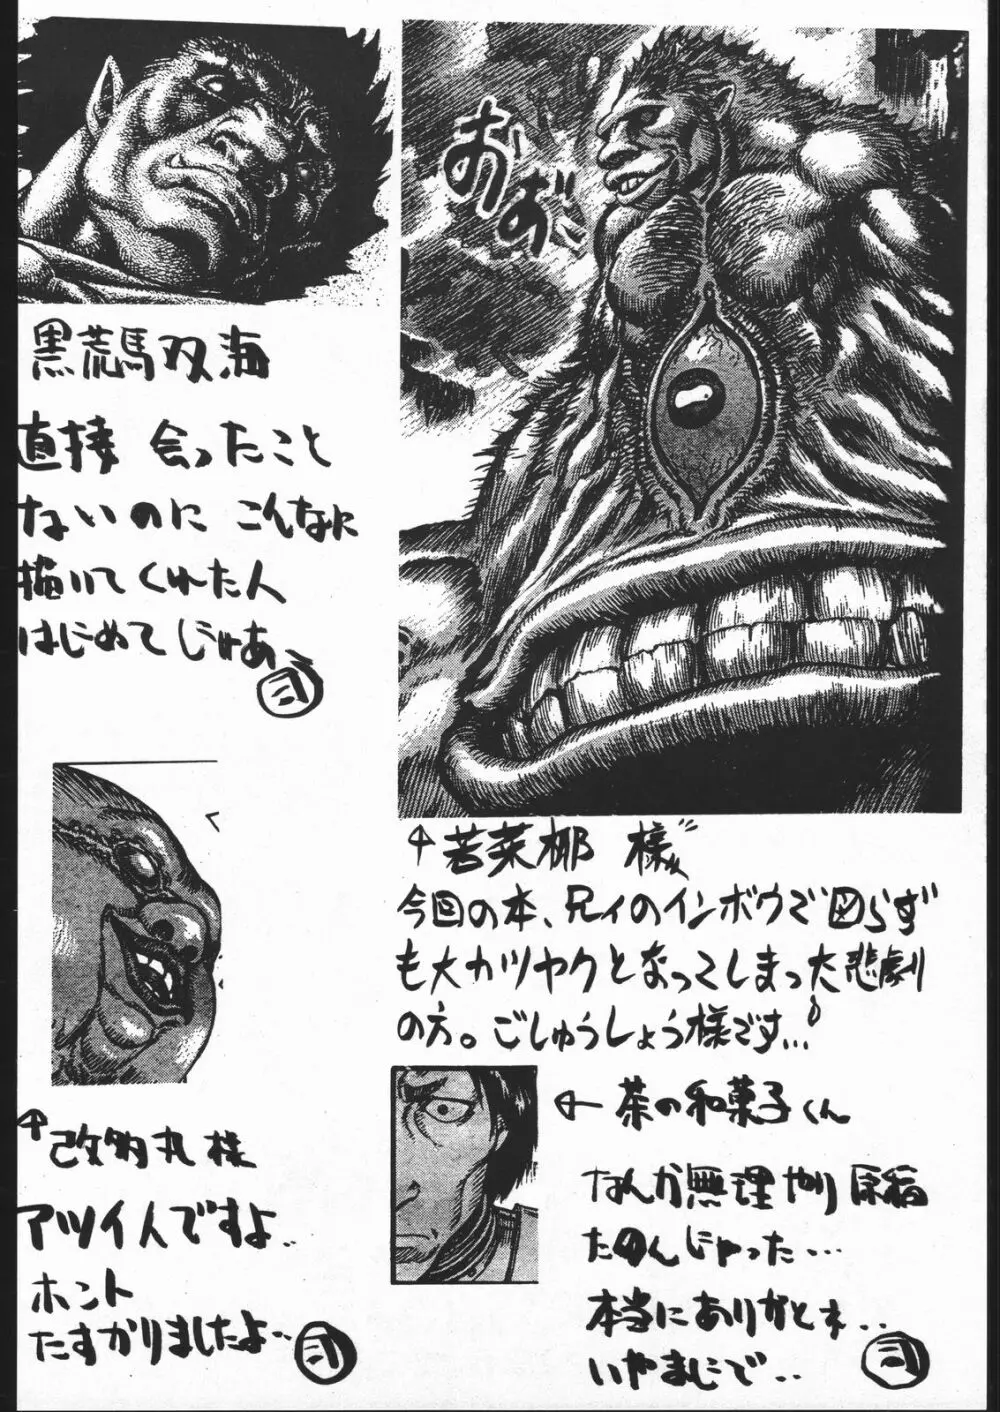 おおお
黒荒馬双海
直接 会ったこと
ないのに こんなに
描いてくれた人
はじめてじゃあ〜
弐
↑若菜梛 様〃
今回の本、兄ィのインボウで図らず
も大カツヤクとなってしまった悲劇
の方。ごしゅうしょう様です…
←茶の和菓子くん
なんか無理やり原稿
たのんじゃった…
本当にありがとネ‥
いやまじで‥
弐
↑改多丸 様
アツイ人ですよ‥
ホント
たすかりましたよ‥
弐